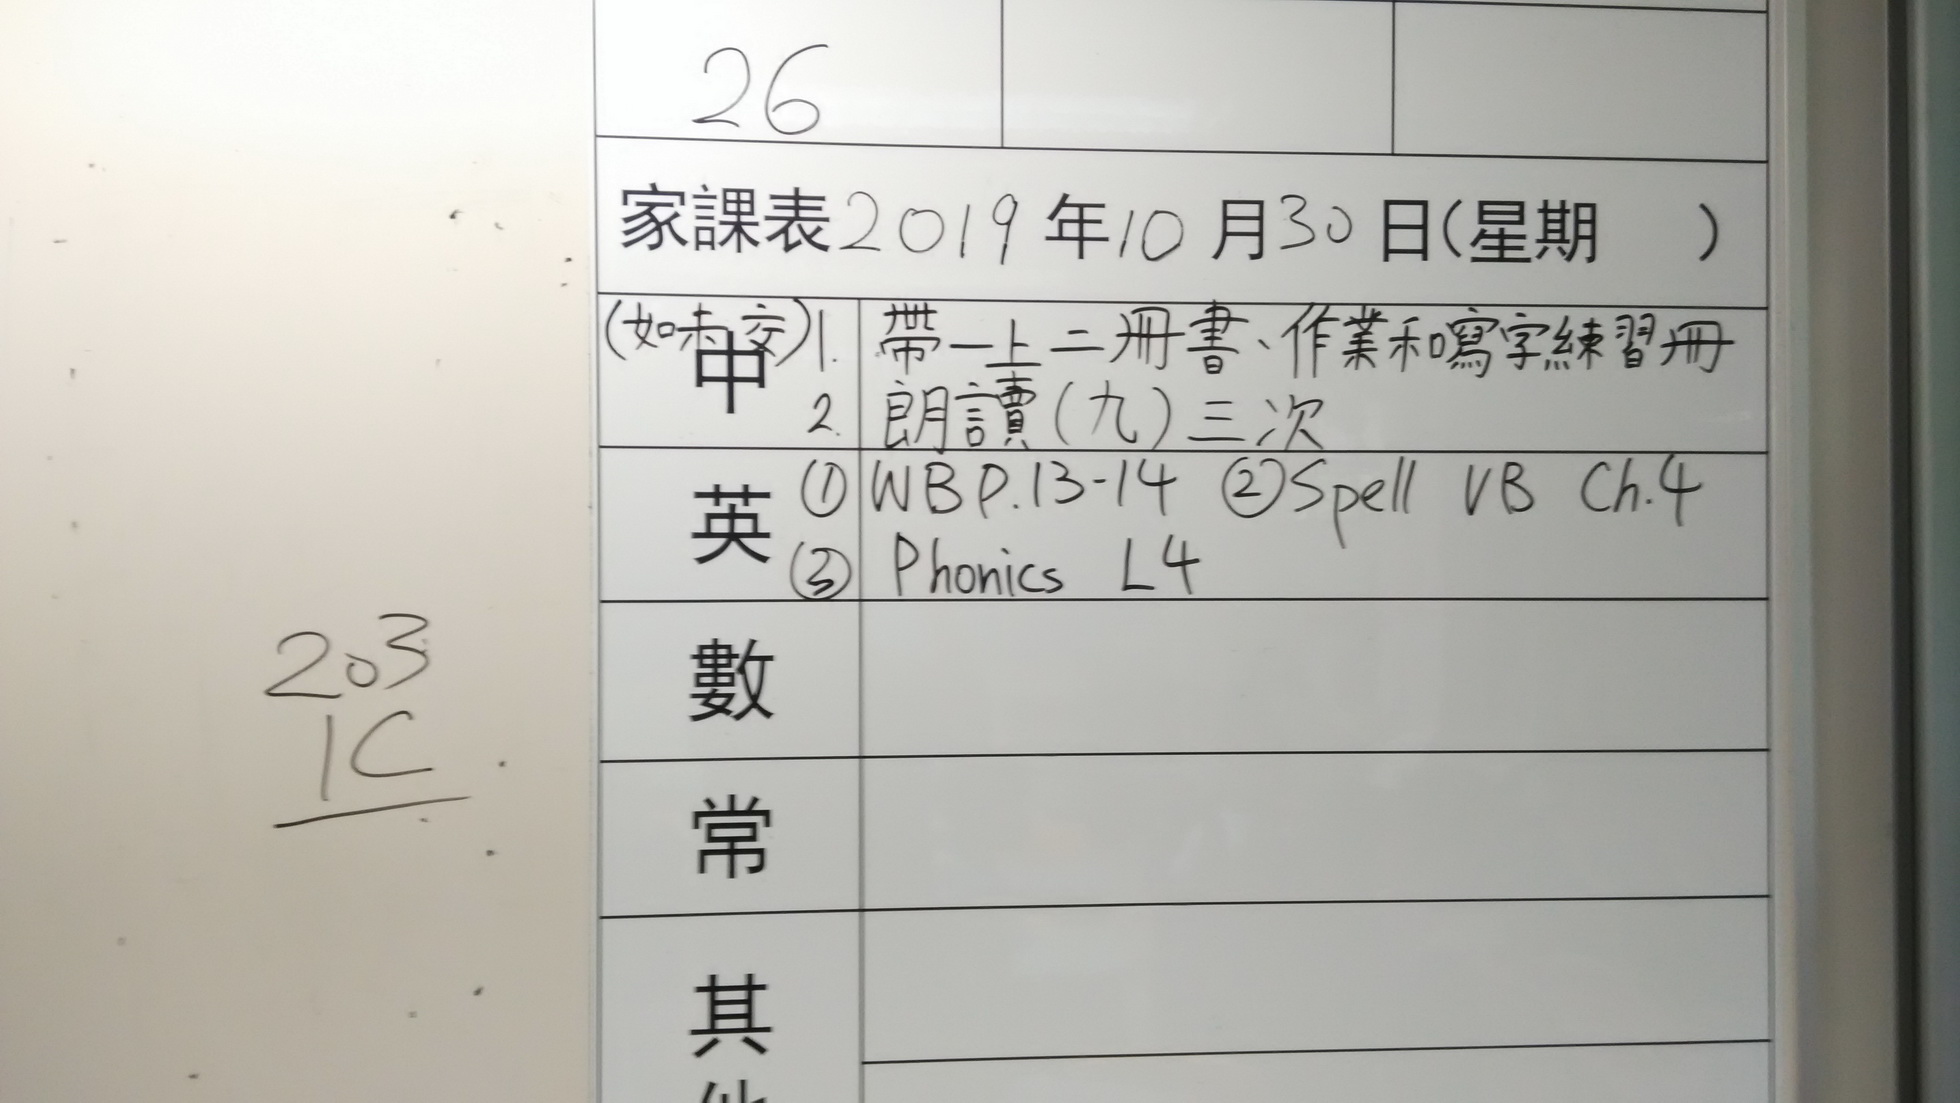 26
家課表2019年10月30日(星期 )
(如未交)1. 帶一上二冊書、作業和寫字練習冊
中
2. 朗讀(九)三次
英 ① WB P.13-14 ② Spell VB Ch.4
③ Phonics L4
203
1C
數
常
其
他